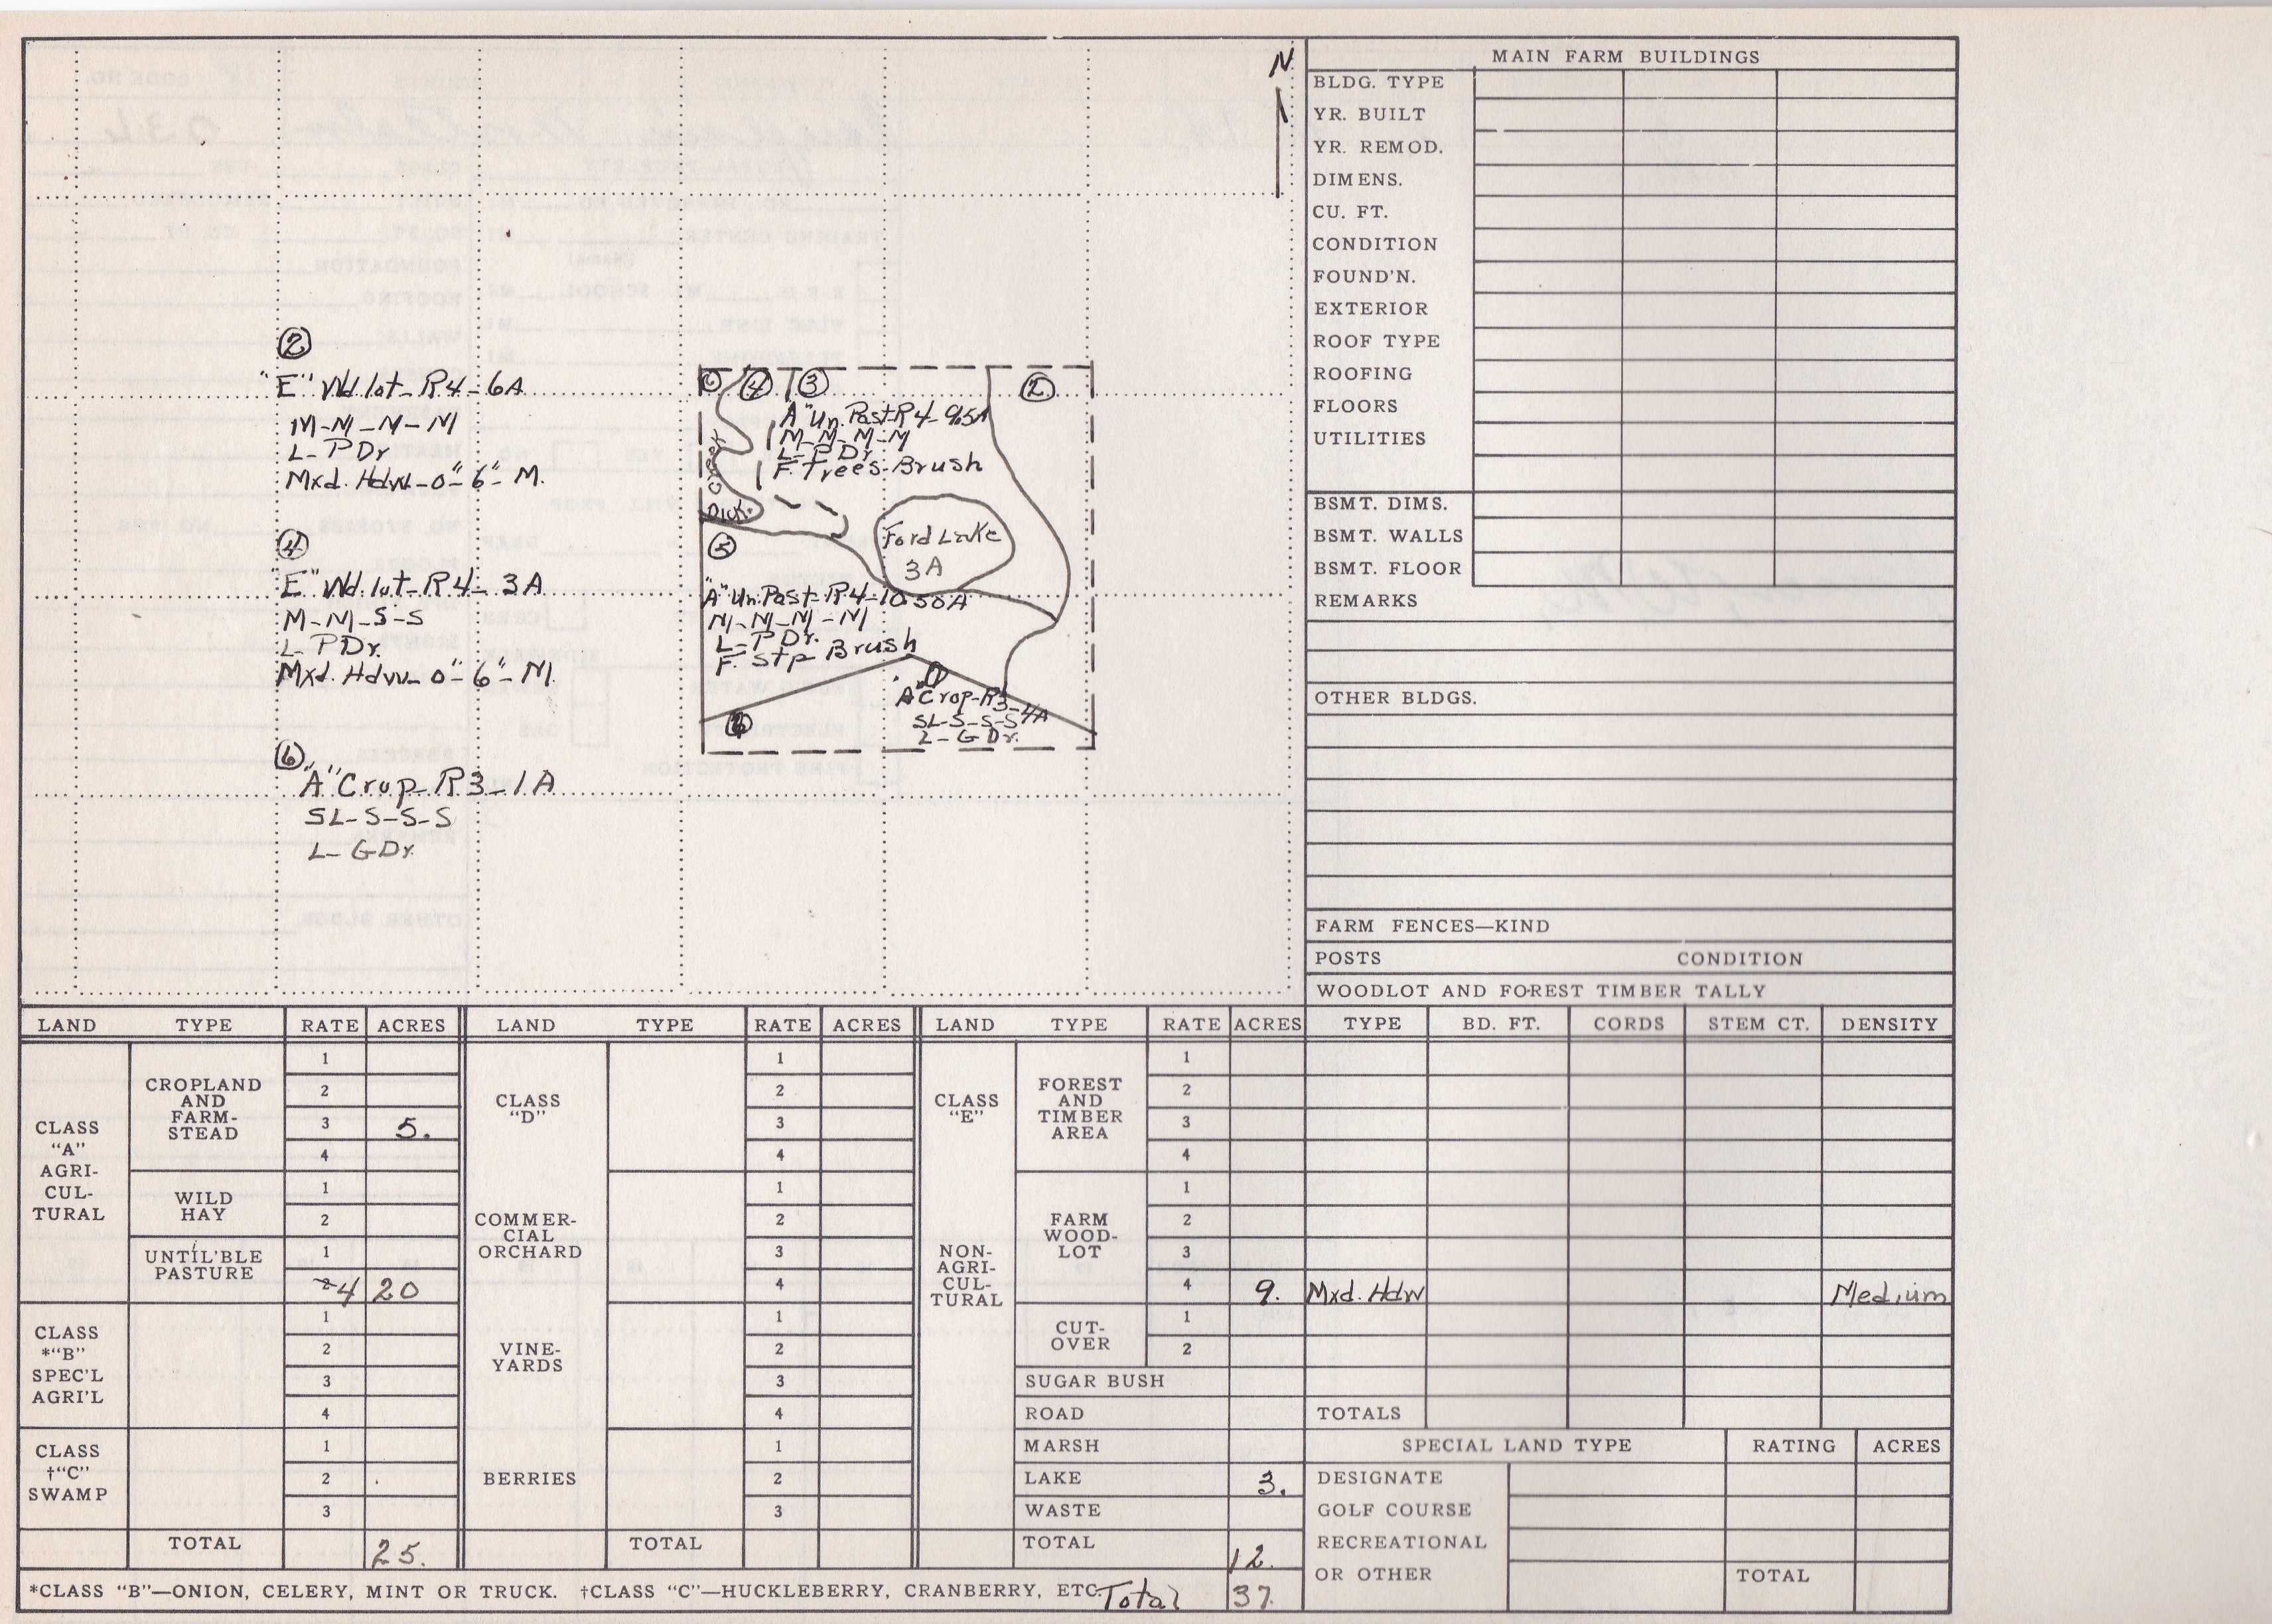 N
②
"E" Wd. lot - R4 - 6A
M-M-M-M
L-PDr
Mxd. Hdw - 0"-6" - M.
④
"E" Wd. lot - R4 - 3A
M-M-S-S
L-PDr.
Mxd. Hdw - 0"-6" - M.
⑥
"A" Crop - R3 - 1A
SL-S-S-S
L-GDr.
⑥ ④ ③ ②
"A" Un. Past - R4 - 9.5A
M-M-M-M
L-PDr
F. Trees-Brush
Creek
Dick.
Ford Lake
3A
⑤
"A" Un. Past - R4 - 10.50A
M-M-M-M
L-PDr.
F. Stp Brush
①
"A" Crop - R3 - 4A
SL-S-S-S
L-GDr.
MAIN FARM BUILDINGS
BLDG. TYPE
YR. BUILT
YR. REMOD.
DIMENS.
CU. FT.
CONDITION
FOUND'N.
EXTERIOR
ROOF TYPE
ROOFING
FLOORS
UTILITIES
BSMT. DIMS.
BSMT. WALLS
BSMT. FLOOR
REMARKS
OTHER BLDGS.
FARM FENCES—KIND
POSTS CONDITION
WOODLOT AND FOREST TIMBER TALLY
LAND TYPE RATE ACRES LAND TYPE RATE ACRES LAND TYPE RATE ACRES TYPE BD. FT. CORDS STEM CT. DENSITY
CLASS
"A"
AGRI-
CUL-
TURAL
CROPLAND
AND
FARM-
STEAD
1
2
3 5.
4
WILD
HAY
1
2
UNTIL'BLE
PASTURE
1
2 4 20
CLASS
*"B"
SPEC'L
AGRI'L
1
2
3
4
CLASS
†"C"
SWAMP
1
2
3
TOTAL 25.
CLASS
"D"
1
2
3
4
COMMER-
CIAL
ORCHARD
1
2
3
4
VINE-
YARDS
1
2
3
4
BERRIES
1
2
3
TOTAL
CLASS
"E"
NON-
AGRI-
CUL-
TURAL
FOREST
AND
TIMBER
AREA
1
2
3
4
FARM
WOOD-
LOT
1
2
3
4 9. Mxd. Hdw Medium
CUT-
OVER
1
2
SUGAR BUSH
ROAD
MARSH
LAKE 3.
WASTE
TOTAL 12.
TOTALS
SPECIAL LAND TYPE RATING ACRES
DESIGNATE
GOLF COURSE
RECREATIONAL
OR OTHER TOTAL
*CLASS "B"—ONION, CELERY, MINT OR TRUCK. †CLASS "C"—HUCKLEBERRY, CRANBERRY, ETC. Total 37.